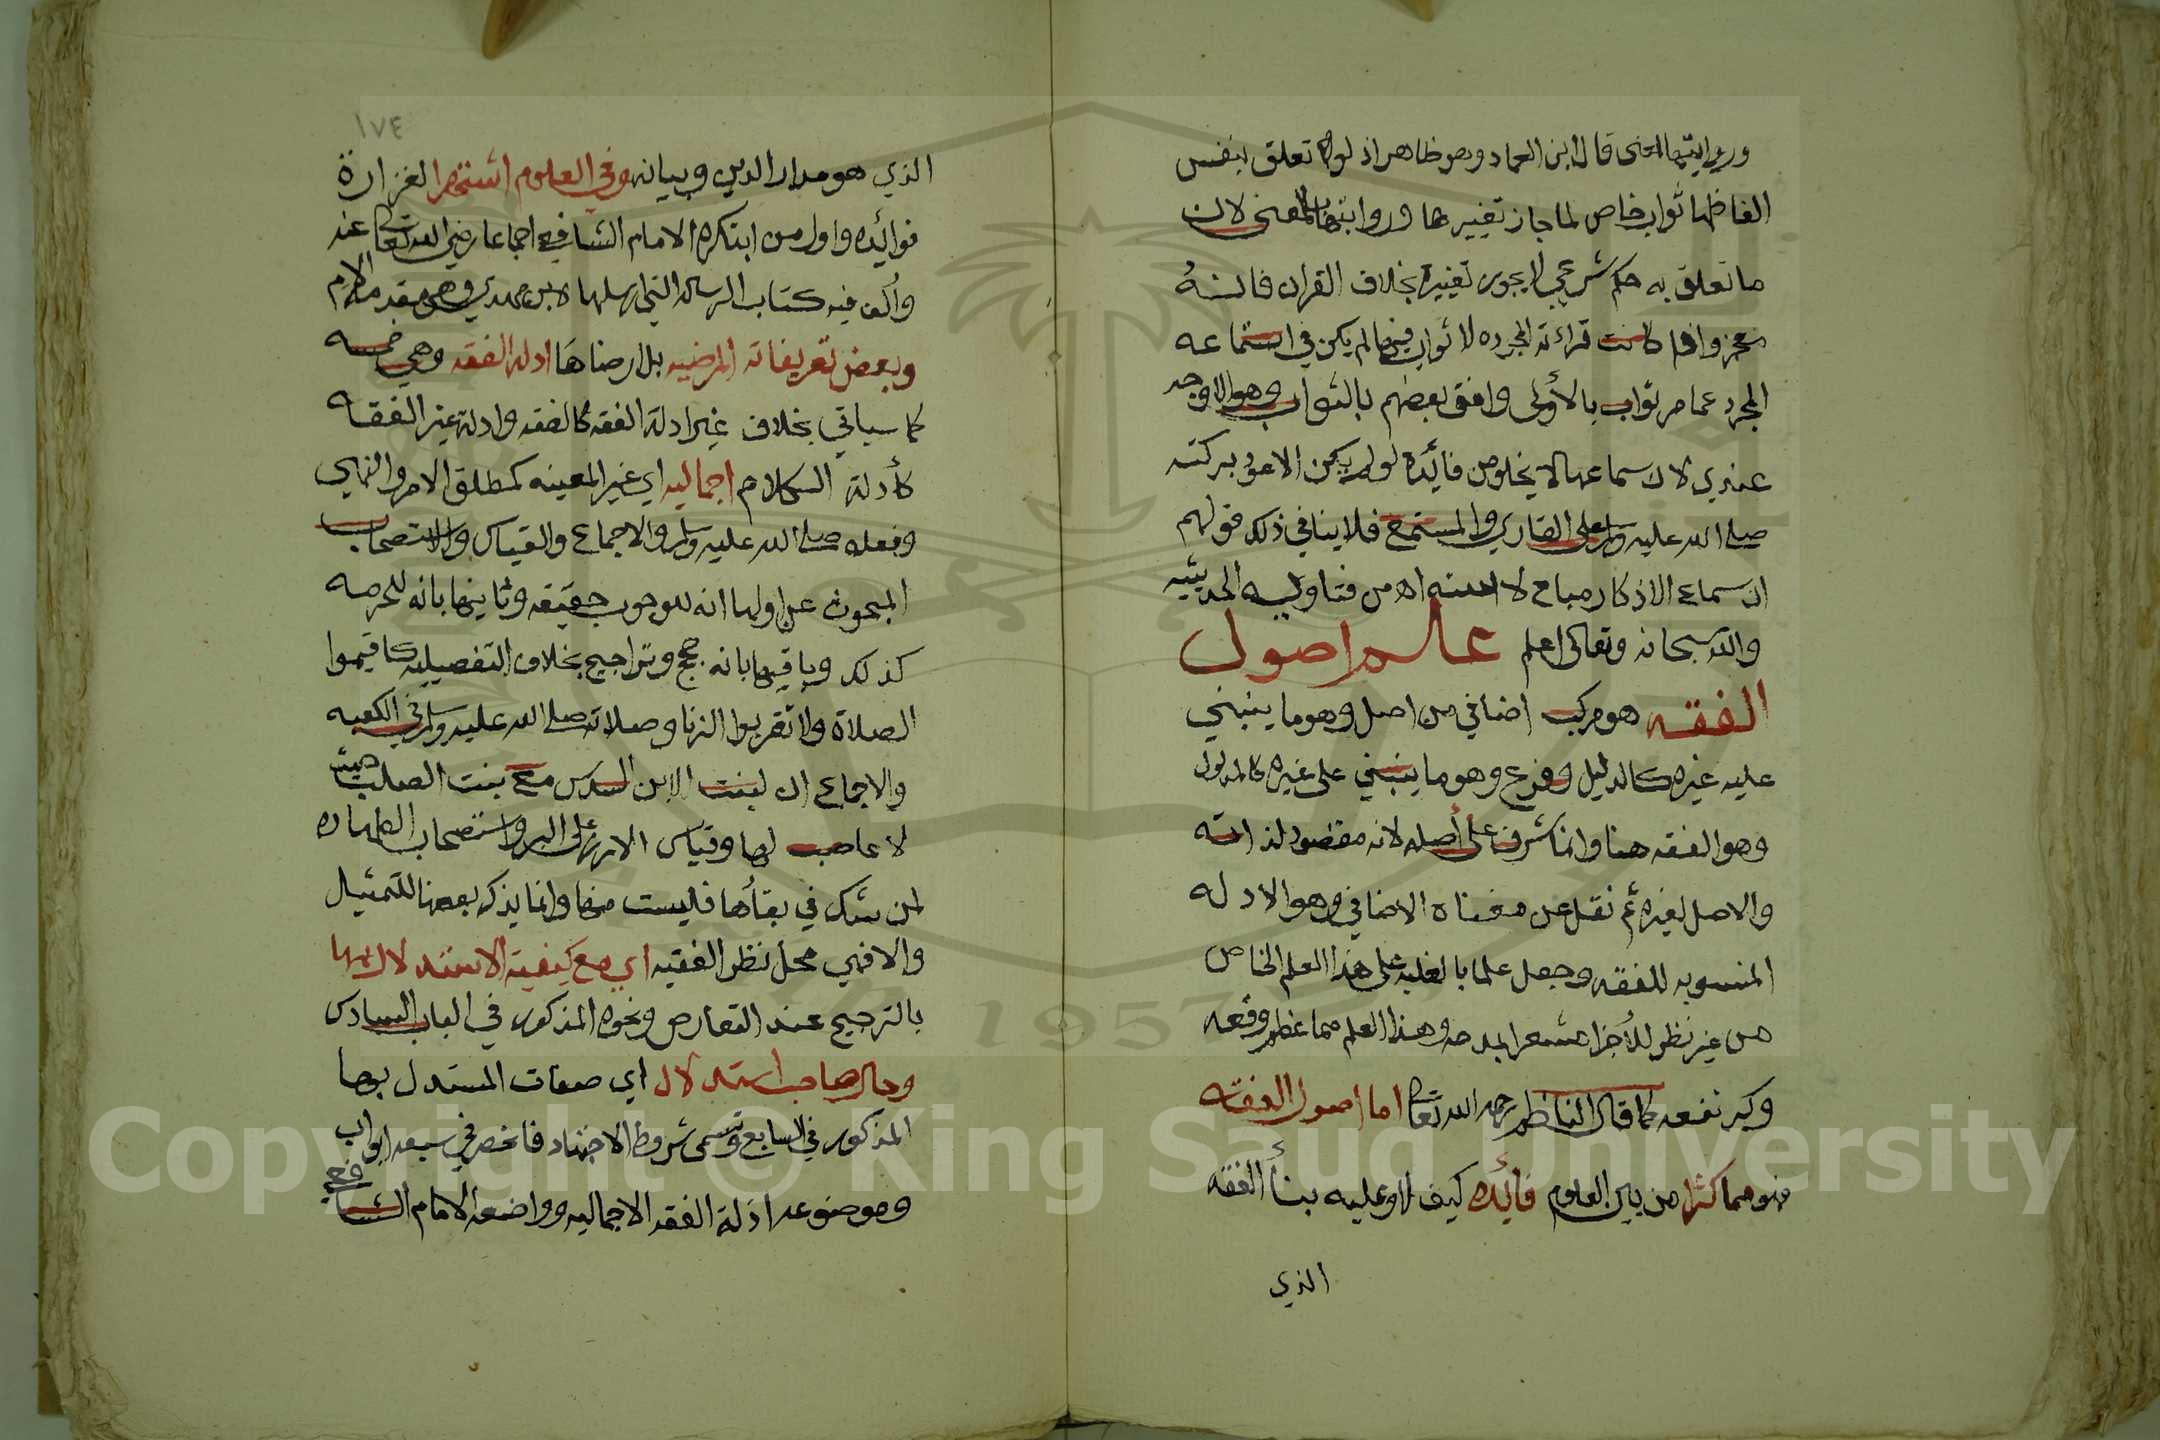 وروايتها بالمعنى قال ابن العماد وهو ظاهر اذ لو تعلق بنفس
الفاظها ثواب خاص لما جاز تغييرها وروايتها بالمعنى لان
ما تعلق به حكم شرعي لا يجوز تغييره بخلاف القرآن فانه
معجز واذا كانت قراءته المجرده لا ثواب فيها لم يكن في استماعه
المجرد عما مر ثواب بالأولى وافق بعضهم بالثواب وهو الاوجه
عندي لان سماعها لا يخلو من فائده لو لم يكن الا عود بركته
صلى الله عليه وسلم على القاري والمستمع فلا ينافي ذلك قولهم
ان سماع الاذكار مباح لا سنه اه من فتاويه الحديثيه
والله سبحانه وتعالى اعلم علم اصول
الفقه هو مركب اضافي من اصل وهو ما ينبني
عليه غيره كالدليل وفرع وهو ما ينبني على غيره كالمدلول
وهو الفقه هنا وانما شرف على أصله لانه مقصود لذاته
والاصل لغيره ثم نقل عن معناه الاضافي وهو الادله
المنسوبه للفقه وجعل علما بالغلبه على هذا العلم الخاص
من غير نظر للأجزا مشعرا بمدحه وهذا العلم مما عظم وقعه
وكبر نفعه كما قال الناظم رحمه الله تعالى اما اصول الفقه
فهو مما كثرا من بين العلوم فائده كيف لا وعليه بنأ الفقه
الذي
١٧٤
الذي هو مدار الدين وبيانه وفي العلوم اشتهرا لغزارة
فوائده واول من ابتكره الامام الشافعي اجماعا رضي الله تعالى عنه
وألف فيه كتاب الرساله التي ارسلها لابن مهدي وهي مقدمه الام
وبعض تعريفاته المرضيه بل ارضاها ادله الفقه وهي خمسه
كما سياتي بخلاف غير ادلة الفقه كالفقه وادلة غير الفقه
كأدلة الكلام اجماليه اي غير المعينه كمطلق الامر والنهي
وفعله صلى الله عليه وسلم والاجماع والقياس والاستصحاب
المبحوث عن اولها انه للوجوب حقيقه وثانيها بانه للحرمه
كذلك وباقيها بانه حجج وتراجيح بخلاف التفصيليه كاقيموا
الصلاة ولا تقربوا الزنا وصلاته صلى الله عليه وسلم في الكعبه
والاجماع ان لبنت الابن السدس مع بنت الصلب حيث
لا عاصب لها وقياس الارز على البر واستصحاب الطهاره
لمن شك في بقأها فليست منها وانما يذكر بعضها للتمثيل
والا فهي محل نظر الفقيه اي مع كيفية الاستدلال بها
بالترجيح عند التعارض ونحوه المذكور في الباب السادس
وحال صاحب استدلال اي صفات المستدل بها
المذكور في السابع وتسمى شروط الاجتهاد فانحصر في سبعه ابواب
وموضوعه ادلة الفقه الاجماليه وواضعه الامام الشافعي